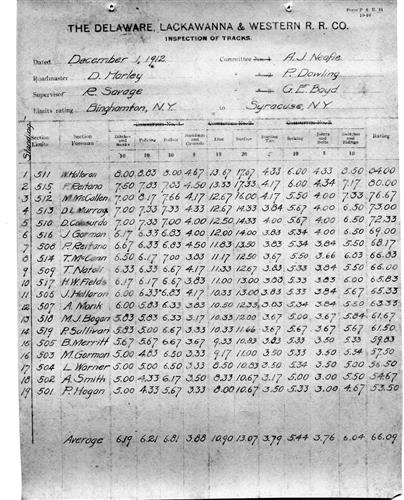 Form P & E 31
THE DELAWARE, LACKAWANNA & WESTERN R. R. CO.
INSPECTION OF TRACKS.
Dated December 1, 1912 Committee No. 1 A. J. Neafie
Roadmaster D. Horley P. Dowling
Supervisor R. Savage G. E. Boyd
Limits rating Binghamton, N.Y. to Syracuse, N.Y.
Standing
Section Section Foreman Policing Ballast Line Surface Rating
1 511 8.00 8.83 8.00 4.67 13.67 17.67 4.33 6.00 4.33 8.50 84.00
2 515 F. Reitano 7.60 7.83 7.83 4.50 13.33 17.33 4.17 6.00 4.34 7.17 80.00
3 512 M. McCallen 7.00 8.17 7.66 4.17 12.67 16.00 4.17 5.50 4.00 7.33 76.67
4 513 D. L. Murray 7.00 7.33 7.33 4.33 12.67 14.33 3.84 5.67 4.00 6.50 73.00
5 510 7.00 7.33 7.00 4.00 12.50 14.33 4.00 5.67 4.00 6.50 72.33
6 516 J. Gorman 6.17 6.33 6.83 4.00 12.00 14.00 3.83 5.34 4.00 6.50 69.00
7 508 P. Reitano 6.67 6.33 6.83 4.50 11.83 13.50 3.83 5.34 3.84 5.50 68.17
8 514 T. McCann 6.50 6.17 7.00 3.83 11.17 12.50 3.67 5.50 3.66 6.03 66.83
9 509 T. Natoli 6.33 6.33 6.67 4.17 11.33 12.67 3.83 5.33 3.84 5.50 66.00
10 517 H. W. Fields 6.17 6.17 6.67 3.83 11.00 13.00 3.83 5.33 3.83 6.00 65.83
11 506 J. Halloran 6.00 6.33 6.83 4.17 10.33 13.00 3.83 5.33 3.84 5.67 65.33
12 507 A. Monk 6.00 5.83 6.33 3.83 10.50 12.33 3.83 5.34 3.84 5.50 63.33
13 518 M. J. Began 5.83 5.83 6.33 3.17 10.33 12.00 3.67 5.00 3.67 5.84 61.67
14 519 P. Sullivan 5.83 5.00 6.67 3.33 10.33 11.66 3.67 5.67 3.67 5.67 61.50
15 505 B. Merritt 5.67 5.67 6.67 3.67 9.33 10.83 3.83 5.33 3.50 5.33 59.83
16 503 M. Gorman 5.00 4.83 6.50 3.33 9.17 11.00 3.50 5.33 3.50 5.34 57.50
17 504 L. Warner 5.00 5.00 6.50 3.33 8.50 10.83 3.50 5.33 3.50 5.00 56.50
18 502 A. Smith 5.00 4.33 6.17 3.50 8.33 10.67 3.17 5.00 3.00 5.50 54.67
19 501 P. Hogan 5.00 4.33 5.67 3.33 8.00 10.67 3.50 5.33 3.00 4.67 53.50
Average 6.19 6.21 6.81 3.88 10.90 13.07 3.79 5.44 3.76 6.04 66.09